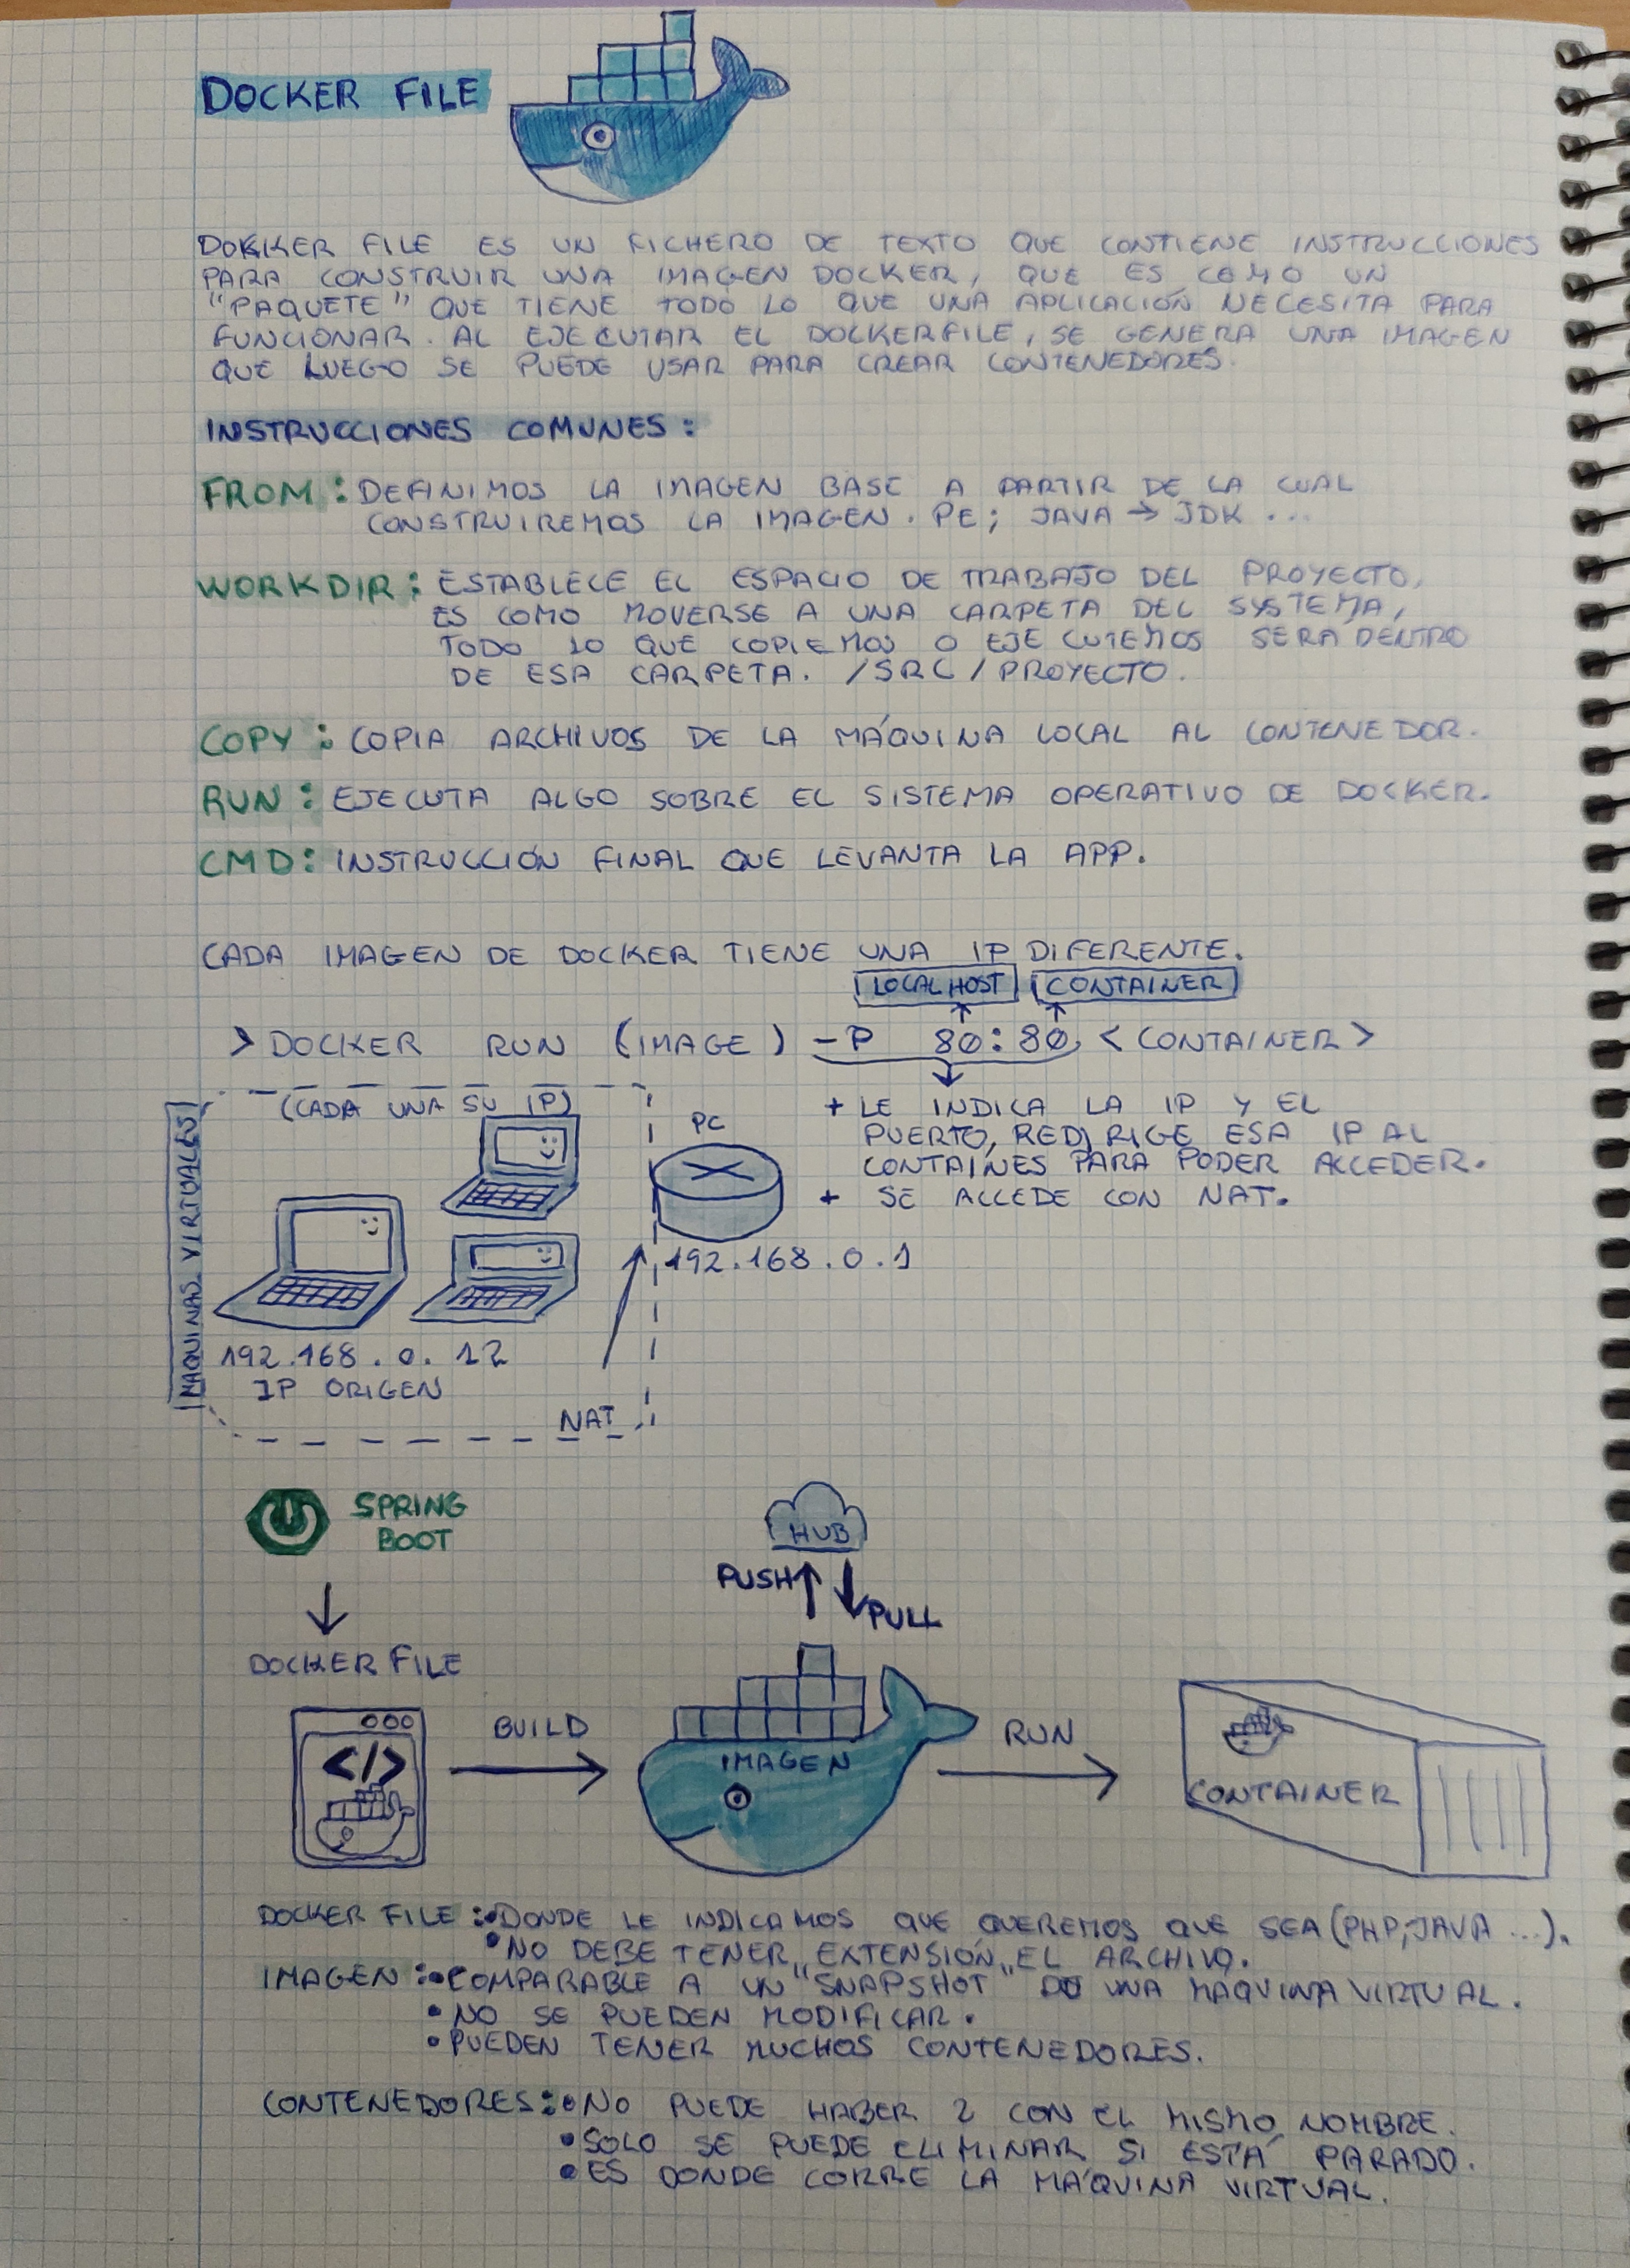 DOCKER FILE
DOKKER FILE ES UN FICHERO DE TEXTO QUE CONTIENE INSTRUCCIONES
PARA CONSTRUIR UNA IMAGEN DOCKER, QUE ES COMO UN
"PAQUETE" QUE TIENE TODO LO QUE UNA APLICACIÓN NECESITA PARA
FUNCIONAR. AL EJECUTAR EL DOCKERFILE, SE GENERA UNA IMAGEN
QUE LUEGO SE PUEDE USAR PARA CREAR CONTENEDORES.
INSTRUCCIONES COMUNES:
FROM: DEFINIMOS LA IMAGEN BASE A PARTIR DE LA CUAL
CONSTRUIREMOS LA IMAGEN. PE; JAVA → JDK ...
WORKDIR: ESTABLECE EL ESPACIO DE TRABAJO DEL PROYECTO,
ES COMO MOVERSE A UNA CARPETA DEL SYSTEMA,
TODO LO QUE COPIEMOS O EJECUTEMOS SERA DENTRO
DE ESA CARPETA. /SRC/PROYECTO.
COPY: COPIA ARCHIVOS DE LA MÁQUINA LOCAL AL CONTENEDOR.
RUN: EJECUTA ALGO SOBRE EL SISTEMA OPERATIVO DE DOCKER.
CMD: INSTRUCCIÓN FINAL QUE LEVANTA LA APP.
CADA IMAGEN DE DOCKER TIENE UNA IP DIFERENTE.
LOCALHOST CONTAINER
> DOCKER RUN (IMAGE) -P 80:80 <CONTAINER>
(CADA UNA SU IP)
MAQUINAS VIRTUALES
PC
192.168.0.1
+ LE INDICA LA IP Y EL
PUERTO, REDIRIGE ESA IP AL
CONTAINES PARA PODER ACCEDER.
+ SE ACCEDE CON NAT.
192.168.0.12
IP ORIGEN
NAT
SPRING
BOOT
HUB
PUSH
PULL
DOCKER FILE
</>
BUILD
IMAGEN
RUN
CONTAINER
DOCKER FILE: • DONDE LE INDICAMOS QUE QUEREMOS QUE SEA (PHP, JAVA ...).
• NO DEBE TENER "EXTENSIÓN" EL ARCHIVO.
IMAGEN: • COMPARABLE A UN "SNAPSHOT" DE UNA MAQUINA VIRTUAL.
• NO SE PUEDEN MODIFICAR.
• PUEDEN TENER MUCHOS CONTENEDORES.
CONTENEDORES: • NO PUEDE HABER 2 CON EL MISMO NOMBRE.
• SOLO SE PUEDE ELIMINAR SI ESTÁ PARADO.
• ES DONDE CORRE LA MÁQUINA VIRTUAL.